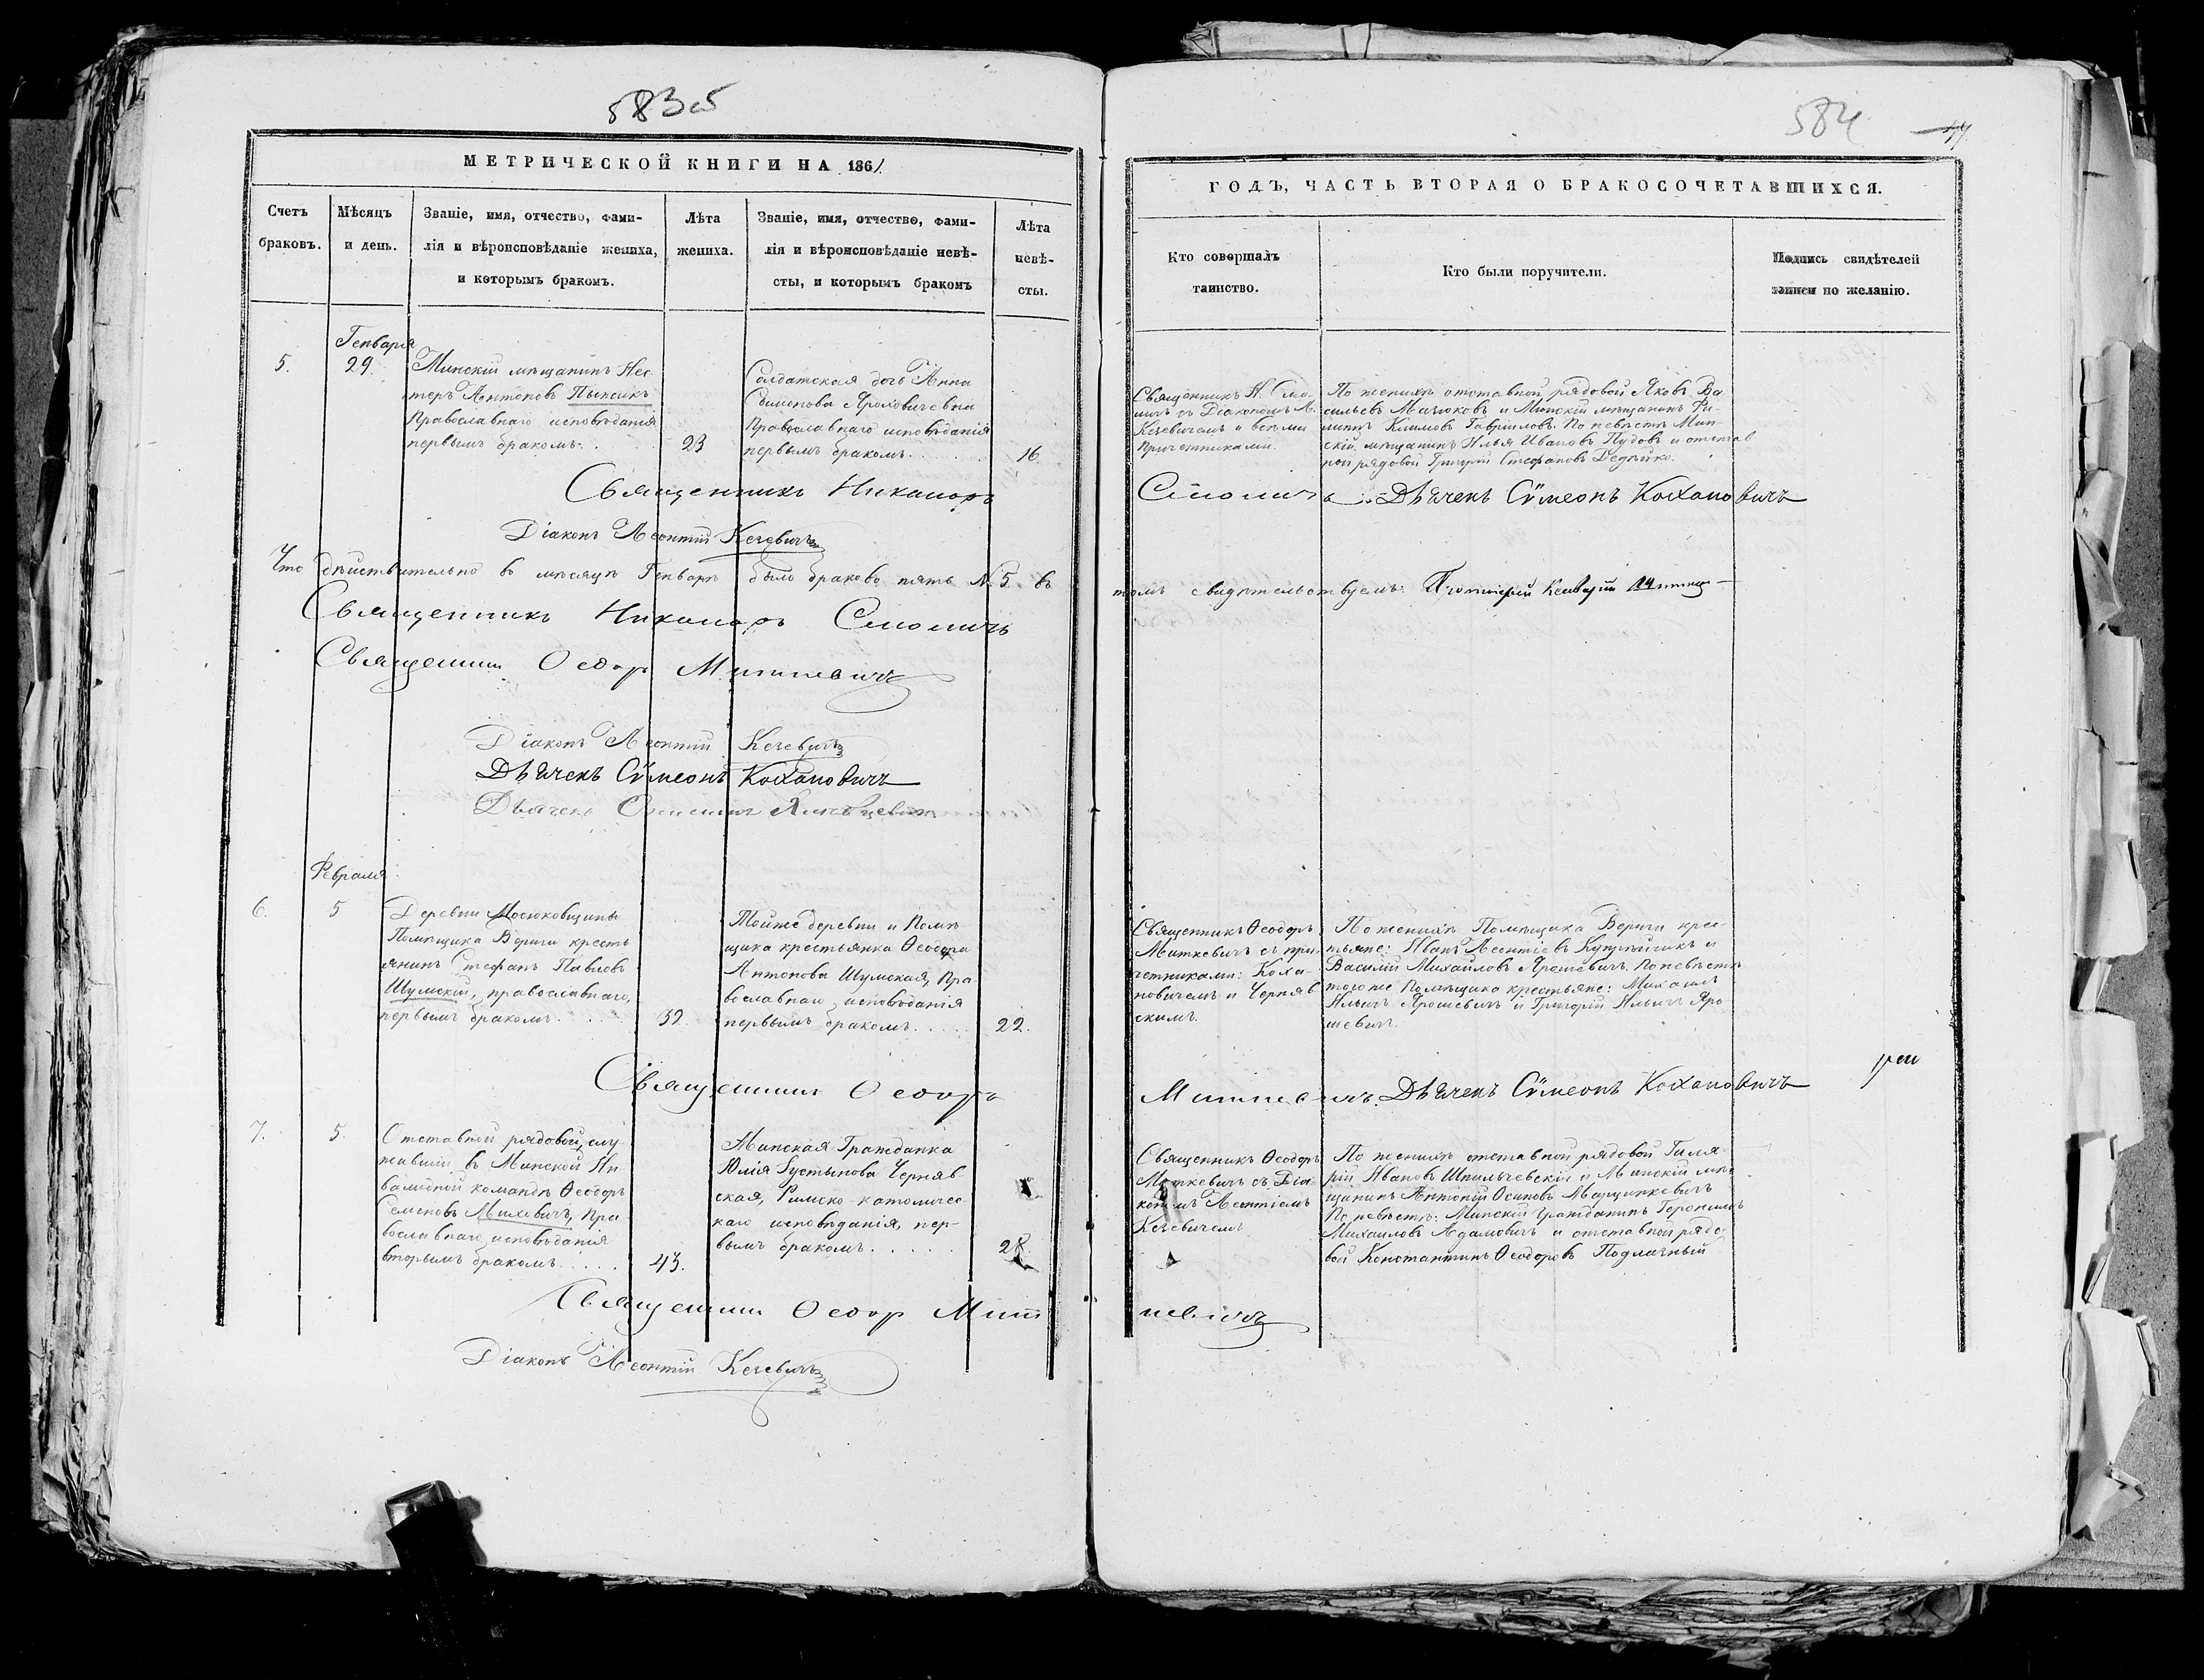 583об
МЕТРИЧЕСКОЙ КНИГИ НА 1861
Счетъ браковъ.
Мѣсяцъ и день.
Званіе, имя, отчество, фами-
лія и вѣроисповѣданіе жениха,
и которымъ бракомъ.
Лѣта жениха.
Званіе, имя, отчество, фами-
лія и вѣроисповѣданіе невѣ-
сты, и которымъ бракомъ
Лѣта невѣ-
сты.
Генваря
5.
29.
Минскій мѣщанинъ Нес-
теръ Антоновъ
Православнаго исповѣданія
первымъ бракомъ.
23
Солдатская дочь Анна
Сѵменова Яроховичевна
Православнаго исповѣданія
первымъ бракомъ.
16.
Священникъ Никаноръ
Діаконъ Леонтій Кечевичъ
Что дѣйствительно въ мѣсяцѣ Генварѣ было браковъ пять № 5. въ
Священникъ Никаноръ Смоличъ
Священникъ Ѳеодоръ Миткевичъ
Діаконъ Леонтій Кечевичъ
Дьячекъ Сѵмеонъ Кохановичъ
Дьячекъ
Февраля
6.
5
Деревни Мосюковщины
Помѣщика Вериги кресть
янинъ Стефанъ Павловъ
Шумскій, православнаго,
первымъ бракомъ.
32.
Тойже деревни и Помѣ
щика крестьянка Ѳеодора
Антонова Шумская, Пра
вославнаго исповѣданія
первымъ бракомъ.
22.
Священникъ Ѳеодоръ
7.
5.
Отставной рядовой, слу-
жавшій въ Минской Ин
валидной командѣ Ѳеодоръ
Семеновъ Михевичъ, Пра
вославнаго исповѣданія
вторымъ бракомъ.
43.
Минская Гражданка
Юлія Густынова Черняв
ская, Римско-католичес-
каго исповѣданія, пер-
вымъ бракомъ.
28
Священникъ Ѳеодоръ Мит
Діаконъ Леонтій Кечевичъ
584
ГОДЪ, ЧАСТЬ ВТОРАЯ О БРАКОСОЧЕТАВШИХСЯ.
Кто совершалъ
таинство.
Кто были поручители.
Подпись свидѣтелей
записи по желанію.
Священникъ Н. Смо-
личъ съ Діакономъ Л.
Кечевичемъ и всѣми
Причетниками.
По женихѣ отставной рядовой Яковъ Ва
сильевъ Мачюковъ и Минскій мѣщанинъ Фи-
липпъ Климовъ Гавриловъ. По невѣстѣ Мин-
скій мѣщанинъ Илья Ивановъ Пудовъ и отстав
ной рядовой Григорій Стефановъ Дедѣйко.
Смоличъ Дьячекъ Сѵмеонъ Кохановичъ
томъ свидѣтельствуемъ: Протоіерей
Священникъ Ѳеодоръ
Миткевичъ съ при-
четниками: Коха-
новичемъ и Черняв
скимъ.
По женихѣ Помѣщика Вериги крес-
тьяне: Иванъ Леонтіевъ и
Василій Михайловъ Ярошевичъ. По невѣстѣ
тогоже Помѣщика крестьяне: Михаилъ
Ильичъ Ярошевичъ и Григорій Ильичъ Яро
шевичъ.
Миткевичъ. Дьячекъ Сѵмеонъ Кохановичъ
Священникъ Ѳеодоръ
Миткевичъ съ Діа-
кономъ Леонтіемъ
Кечевичемъ
По женихѣ отставной рядовой Гиля-
рій Ивановъ Шпилевскій и Минскій мѣ-
щанинъ Антоній Осиповъ Марцинкевичъ
По невѣстѣ: Минскій гражданинъ Геронимъ
Михаиловъ Адамовичъ и отставной рядо-
вой Константинъ Ѳеодоровъ Подлачный
кевичъ